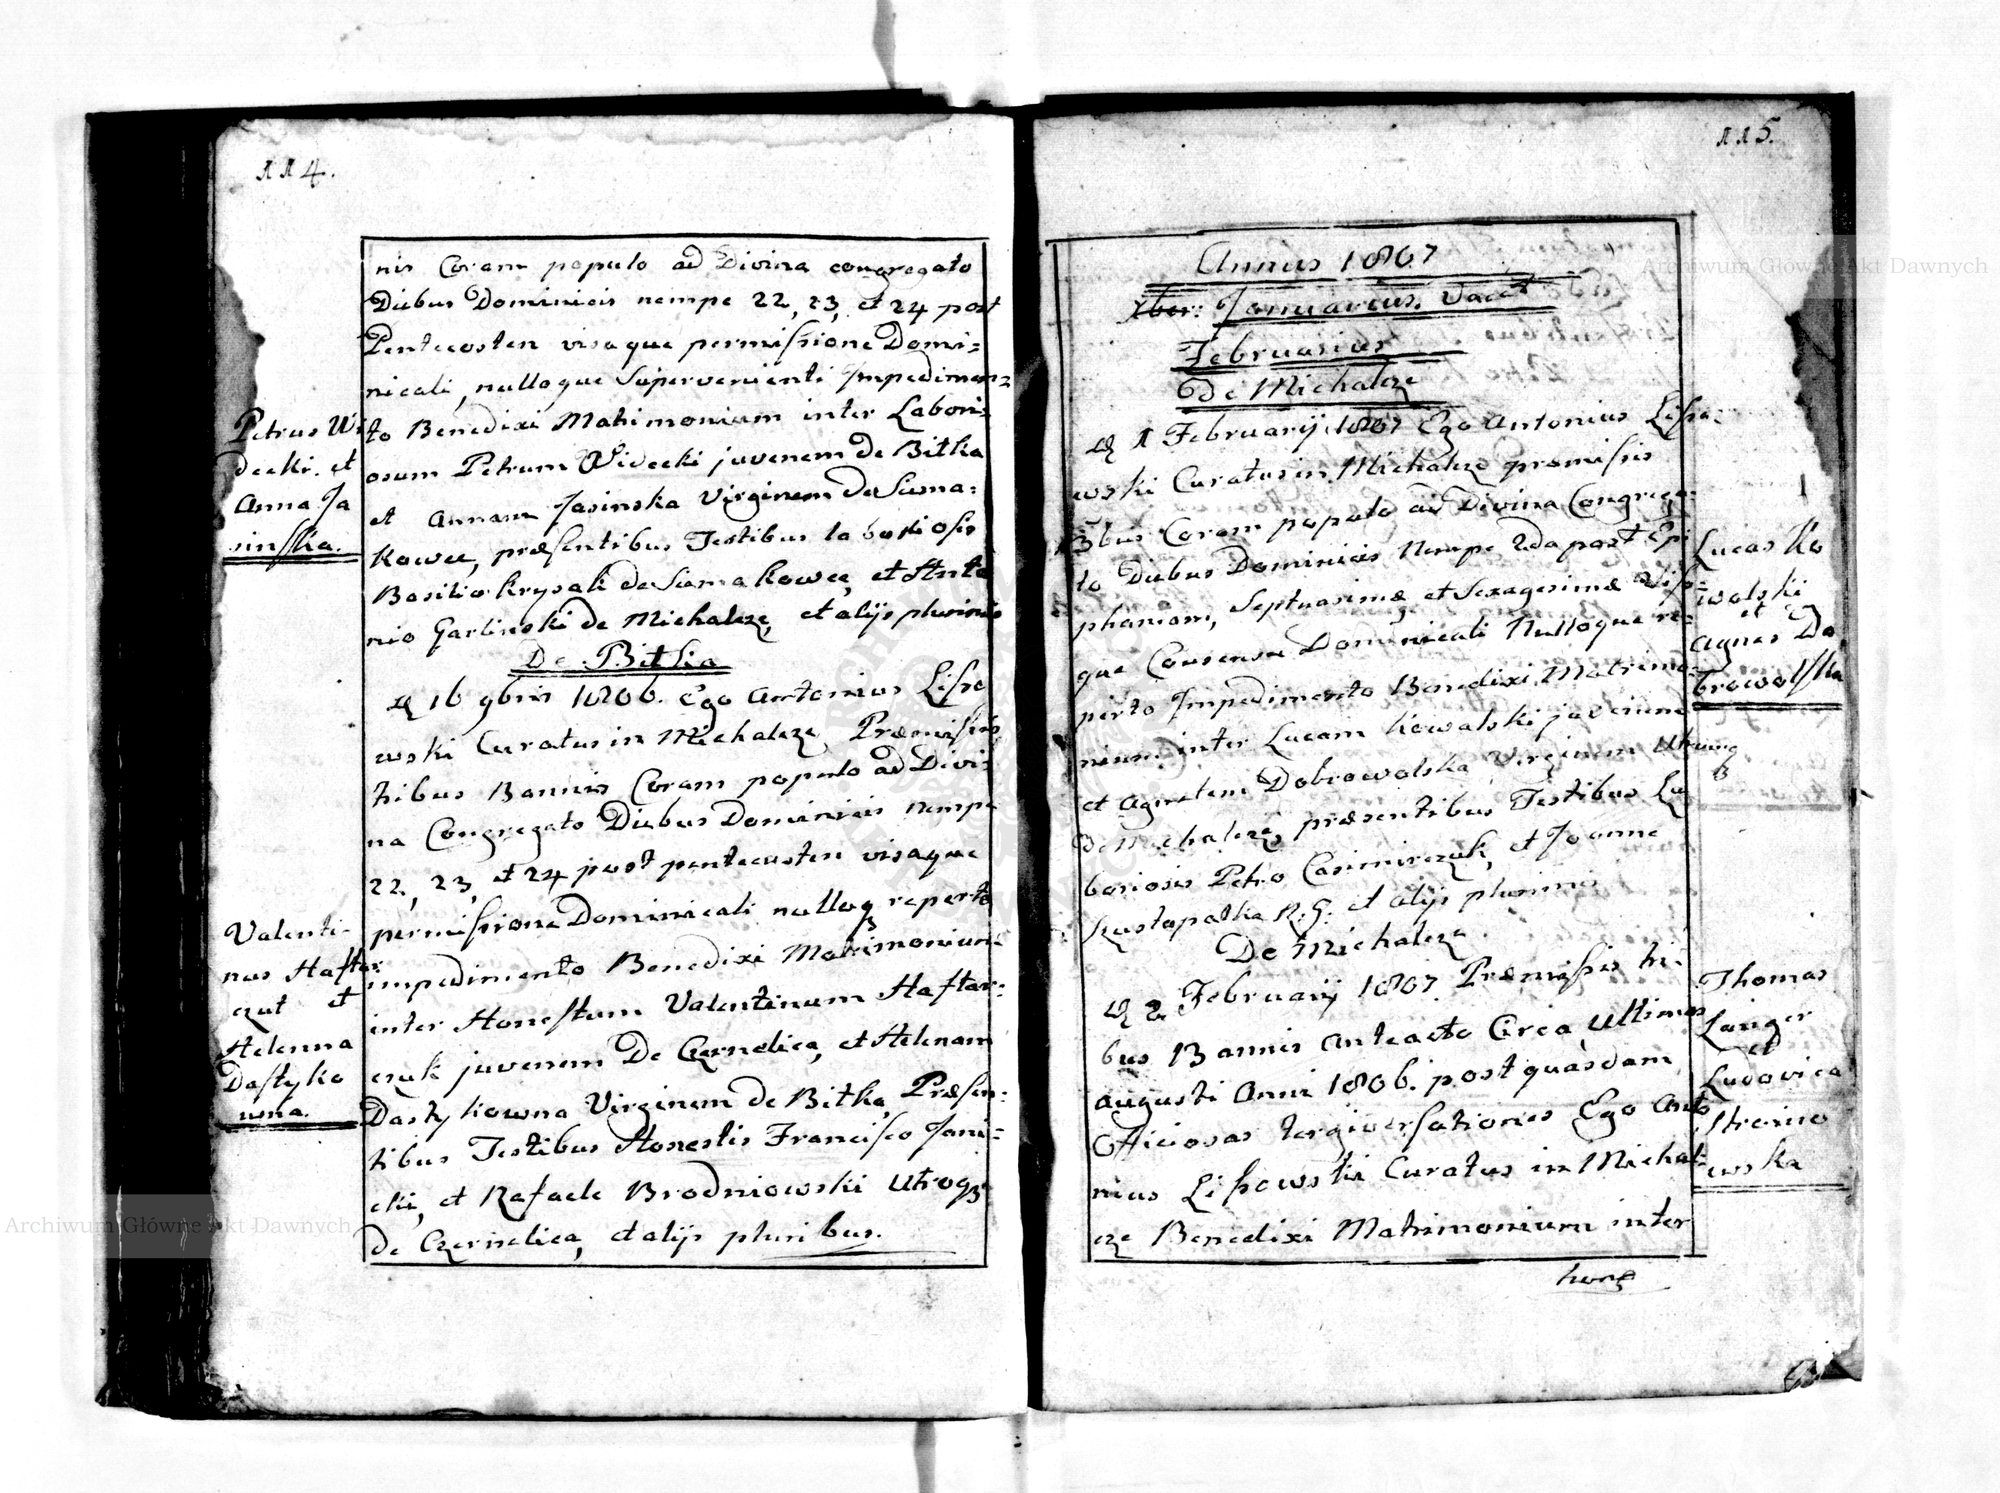 114.
nis Coram populo ad Divina congregato
Diebus Dominicis nempe 22, 23, et 24 post
Pentecosten visaque permissione Domi=
nicali, nulloque Supervenienti Impedimen=
to Benedixi Matrimonium inter Labori=
osum Petrum Widecki juvenem de Bitka
et Annam Jasinska Virginem de Suma=
kowce, præsentibus Testibus laboriosis
Basilio Krysak de Sumakowce, et Anto
nio Garlinski de Michalcze, et alijs plurimis
De Bitka
16 9bris 1806. Ego Antonius Lisso
wski Curatus in Michalcze Præmissis
tribus Bannis Coram populo ad Divi
na Congregato Diebus Dominicis nempe
22, 23, et 24 post pentecosten visaque
permissione Dominicali nulloq reperto
impedimento Benedixi Matrimonium
inter Honestum Valentinum Haftar=
czuk juvenem De Czernelica, et Helenam
Dastykowna Virginem de Bitka, Præsen=
tibus Testibus Honestis Francisco Jani=
cki, et Rafaele Brodniowski utroq
de Czernelica, et alijs pluribus.
Petrus Wi
decki et
Anna Ja
sinska.
Valenti-
nus Haftar
czuk et
Helenna
Dastyko
wna.
115.
Annus 1807
Xber: Januarius. Vacat
Februarius
De Michalcze
1 Februarij 1807 Ego Antonius Lisso=
wski Curatus in Michalcze præmissis
3bus Coram populo ad Divina Congrega
to Diebus Dominicis Nempe 2da post Epi
phaniam, Septuasimæ et Sexagesimæ Visо=
que Consensu Dominicali Nulloque re=
perto Impedimento Benedixi Matrimo=
nium inter Lucam Kowalski juvenem
et Agnetem Dobrowolska Virginem Utrumq
de Michalcze, præsentibus Testibus La
boriosis Petro Casimirczuk, et Joanne
Szustopalka R. G. et alijs plurimis
De Michalcze.
2 Februarij 1807 Præmissis tri=
bus Bannis anteacto Circa Ultimos
augusti Anni 1806. post quasdam
Officiosas tergiversationes Ego Anto
nius Lissowski Curatus in Michal=
cze Benedixi Matrimonium inter
hon
Lucas Ko
walski
et
Agnes Do
browolska
Thomas
Langer
et
Ludovica
Strοino
wska